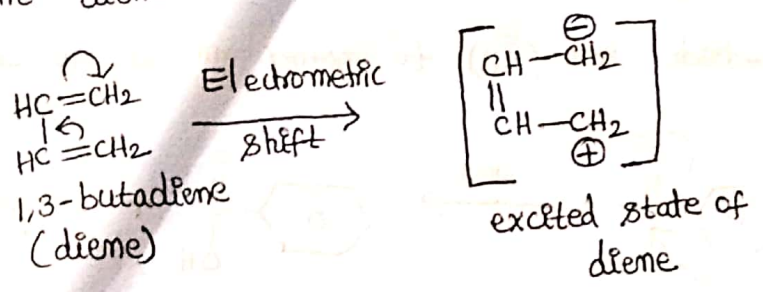 HC=CH2
HC=CH2
1,3-butadiene
(diene)
Electrometric
shift
⊖
CH-CH2
||
CH-CH2
⊕
excited state of
diene